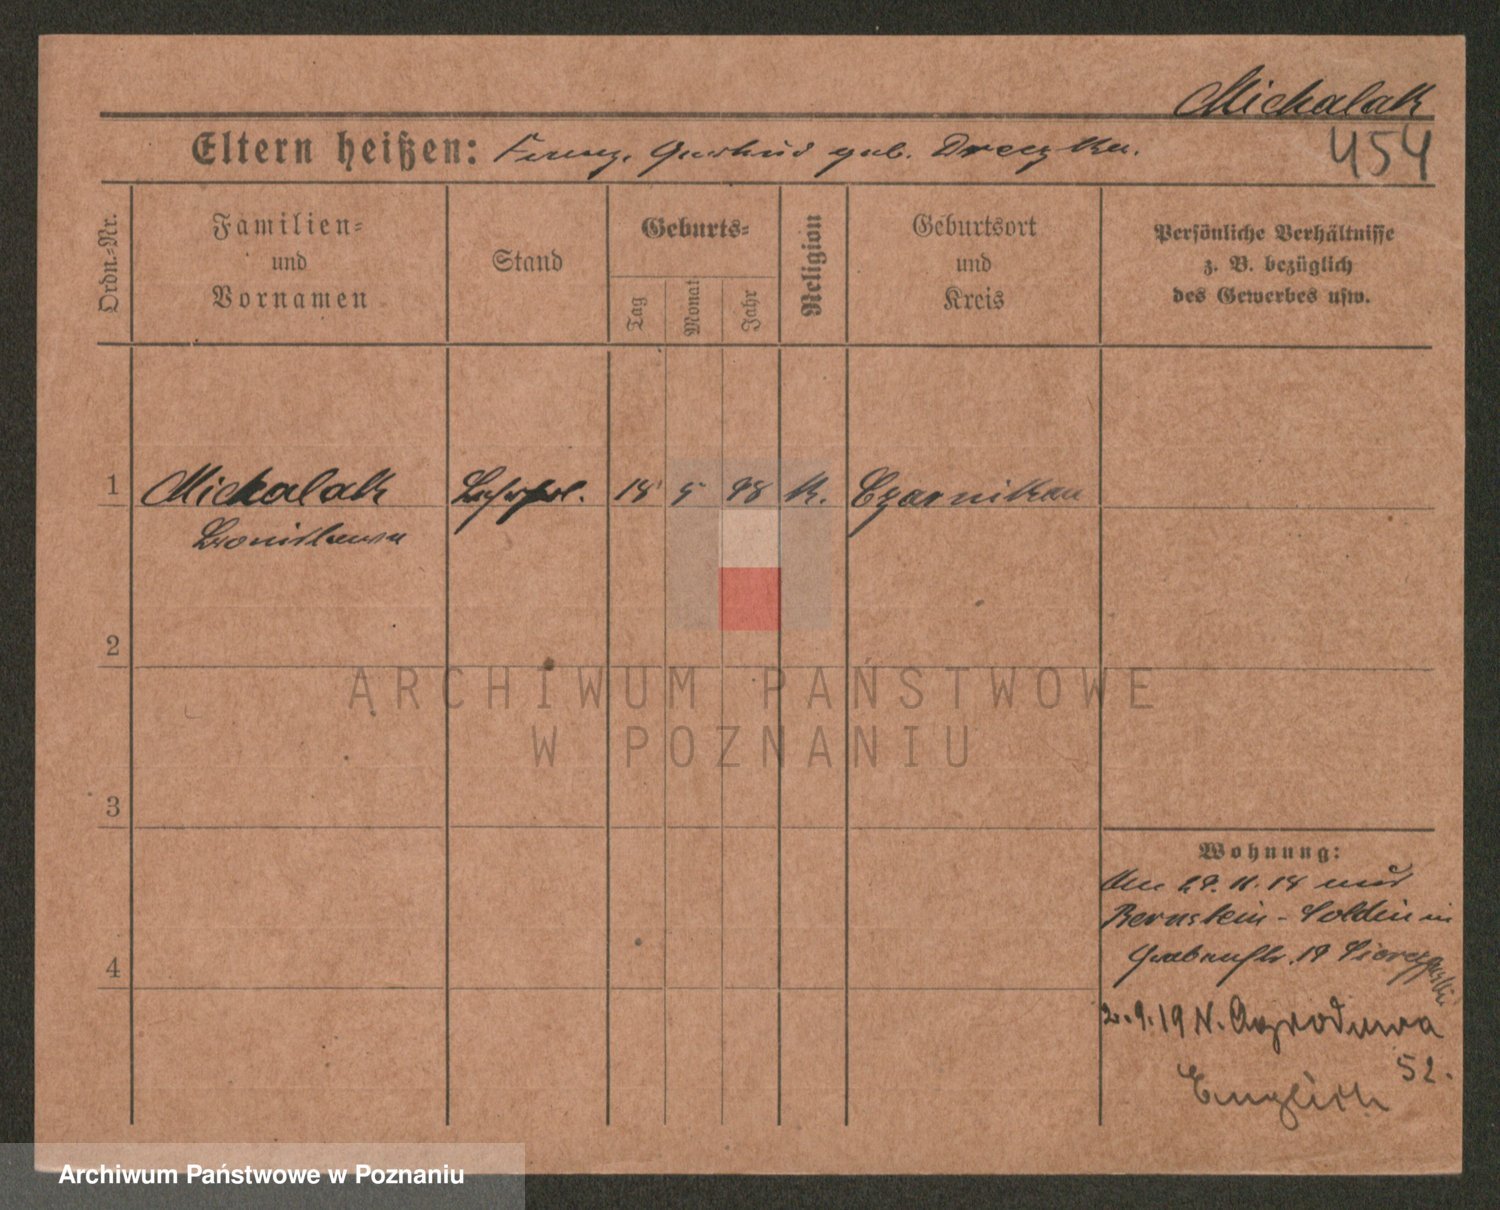 Michalak
454
Eltern heißen: Franz, Gertrud geb. Dreczka.
Ordn.-Nr.
Familien-
und
Vornamen
Stand
Geburts-
Tag
Monat
Jahr
Religion
Geburtsort
und
Kreis
Persönliche Verhältnisse
z. B. bezüglich
des Gewerbes usw.
1 Michalak 18 5 98 K. Czarnikau
Bronislawa
2
3
4
ARCHIWUM PAŃSTWOWE
W POZNANIU
Wohnung:
Am 29.11.18 aus
Bernstein-Soldin in
Grabenstr. 19
2.9.19 N. Ogrodowa
52.
Englisch
Archiwum Państwowe w Poznaniu